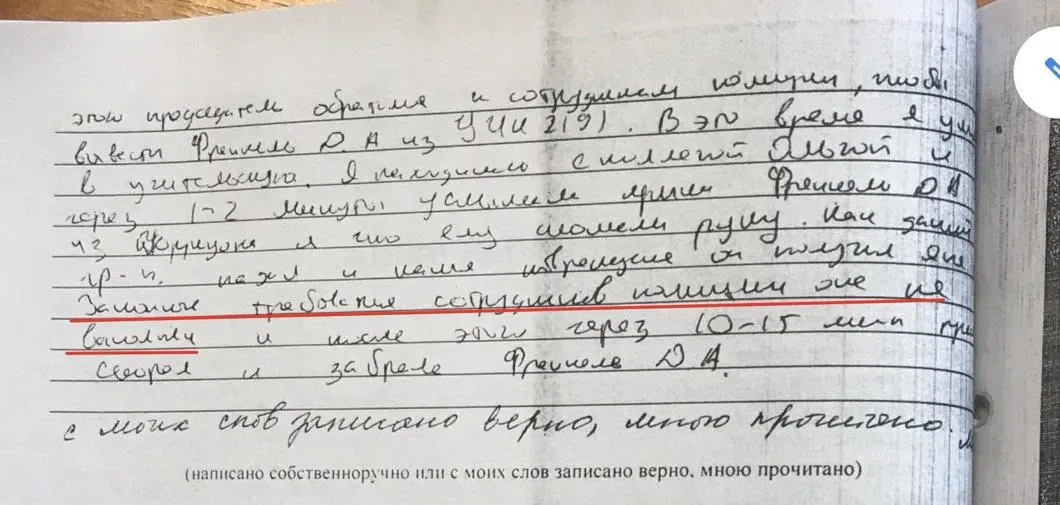 этого председатель обратился к сотрудникам полиции, чтобы
вывести Френкель Д А из УИК 2191. В это время я
в учительскую. Я находилась с коллегой Ольгой и
через 1-2 минуты услышали крики Френкель Д А
из и что ему сломали руку. Как
гр-н. и какие он получил я не
Законные требования сотрудников полиции он не
выполнил и после этого через 10-15 мин
скорая и забрала Френкель Д А.
с моих слов записано верно, мною прочитано.
(написано собственноручно или с моих слов записано верно, мною прочитано)